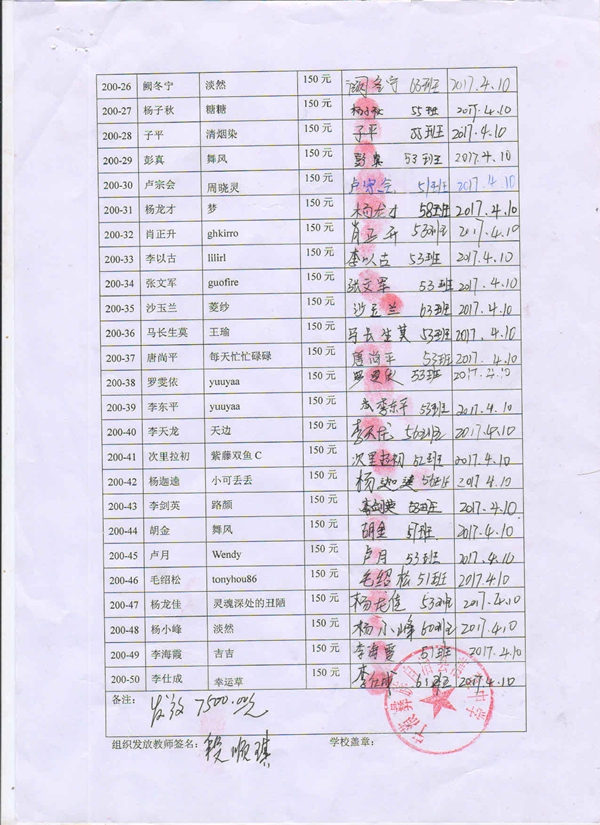 200-26 阙冬宁 淡然 150 元 阙冬宁 63班 2017.4.10
200-27 杨子秋 糖糖 150 元 杨子秋 55班 2017.4.10
200-28 子平 清烟染 150 元 子平 55班 2017.4.10
200-29 彭真 舞风 150 元 彭真 53班 2017.4.10
200-30 卢宗会 周晓灵 150 元 卢宗会 51班 2017.4.10
200-31 杨龙才 梦 150 元 杨龙才 58班 2017.4.10
200-32 肖正升 ghkirro 150 元 肖正升 53班 2017.4.10
200-33 李以古 lilirl 150 元 李以古 53班 2017.4.10
200-34 张文军 guofire 150 元 张文军 53班 2017.4.10
200-35 沙玉兰 菱纱 150 元 沙玉兰 63班 2017.4.10
200-36 马长生莫 王瑜 150 元 马长生莫 53班 2017.4.10
200-37 唐尚平 每天忙忙碌碌 150 元 唐尚平 53班 2017.4.10
200-38 罗雯依 yuuyaa 150 元 罗雯依 53班 2017.4.10
200-39 李东平 yuuyaa 150 元 李东平 53班 2017.4.10
200-40 李天龙 天边 150 元 李天龙 56班 2017.4.10
200-41 次里拉初 紫藤双鱼 C 150 元 次里拉初 52班 2017.4.10
200-42 杨迦逵 小可丢丢 150 元 杨迦逵 2017.4.10
200-43 李剑英 路颜 150 元 李剑英 53班 2017.4.10
200-44 胡金 舞风 150 元 胡金 51班 2017.4.10
200-45 卢月 Wendy 150 元 卢月 53班 2017.4.10
200-46 毛绍松 tonyhou86 150 元 毛绍松 51班 2017.4.10
200-47 杨龙佳 灵魂深处的丑陋 150 元 杨龙佳 53班 2017.4.10
200-48 杨小峰 淡然 150 元 杨小峰 60班 2017.4.10
200-49 李海霞 吉吉 150 元 李海霞 51班 2017.4.10
200-50 李仕成 幸运草 150 元 李仕成 2017.4.10
备注：
发放 7500.00元
组织发放教师签名： 顺琪 学校盖章：